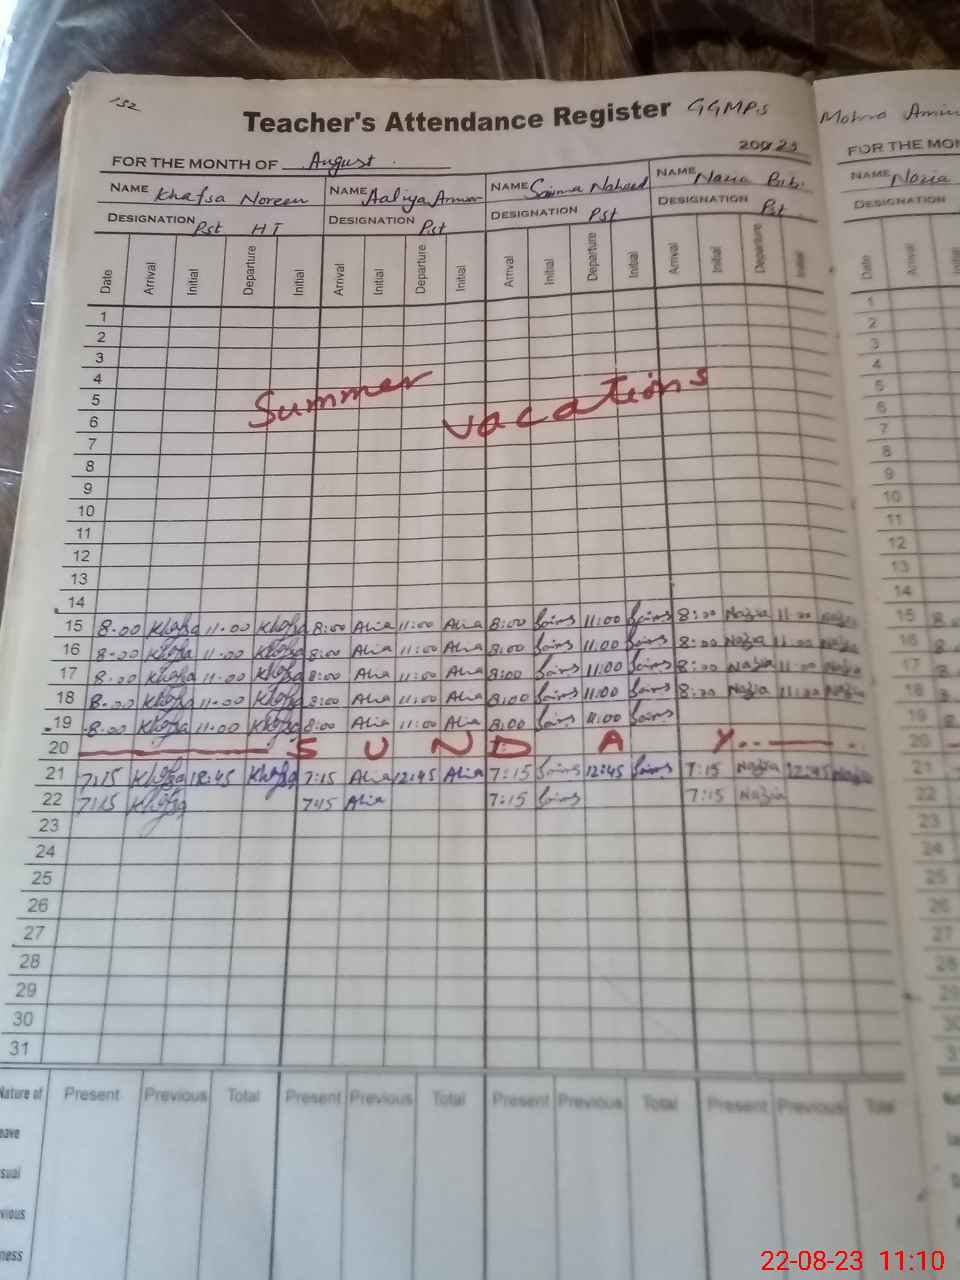 152
Teacher's Attendance Register GGMPS
2023
FOR THE MONTH OF August
NAME Khafsa Noreen NAME Aaliya Anwar NAME Saima Naheed NAME Nazia Bibi
DESIGNATION Pst HT DESIGNATION Pst DESIGNATION Pst DESIGNATION Pst
Date Arrival Initial Departure Initial Arrival Initial Departure Initial Arrival Initial Departure Initial Arrival Initial Departure Initial
1
2
3
4
5
6
Summer vacations
7
8
9
10
11
12
13
14
15 8.00 Khafsa 11.00 Khafsa 8:00 Alia 11:00 Alia 8:00 Saima 11:00 Saima 8:00 Nazia 11.00 Nazia
16 8.00 Khafsa 11.00 Khafsa 8:00 Alia 11:00 Alia 8:00 Saima 11:00 Saima 8:00 Nazia 11.00 Nazia
17 8.00 Khafsa 11.00 Khafsa 8:00 Alia 11:00 Alia 8:00 Saima 11:00 Saima 8:00 Nazia 11.00 Nazia
18 8.00 Khafsa 11.00 Khafsa 8:00 Alia 11:00 Alia 8:00 Saima 11:00 Saima 8:00 Nazia 11.00 Nazia
19 8.00 Khafsa 11.00 Khafsa 8:00 Alia 11:00 Alia 8:00 Saima 11:00 Saima
20 S U N D A Y
21 7:15 Khafsa 12:45 Khafsa 7:15 Alia 12:45 Alia 7:15 Saima 12:45 Saima 7:15 Nazia 12:45 Nazia
22 7:15 Khafsa 7:15 Alia 7:15 Saima 7:15 Nazia
23
24
25
26
27
28
29
30
31
Nature of Present Previous Total Present Previous Total Present Previous Total Present Previous Total
Mohra Amin
FOR THE MON
NAME Nazia
DESIGNATION
Date Arrival
1
2
3
4
5
6
7
8
9
10
11
12
13
14
15
16
17
18
19
20
21
22
23
24
25
26
27
28
22-08-23 11:10